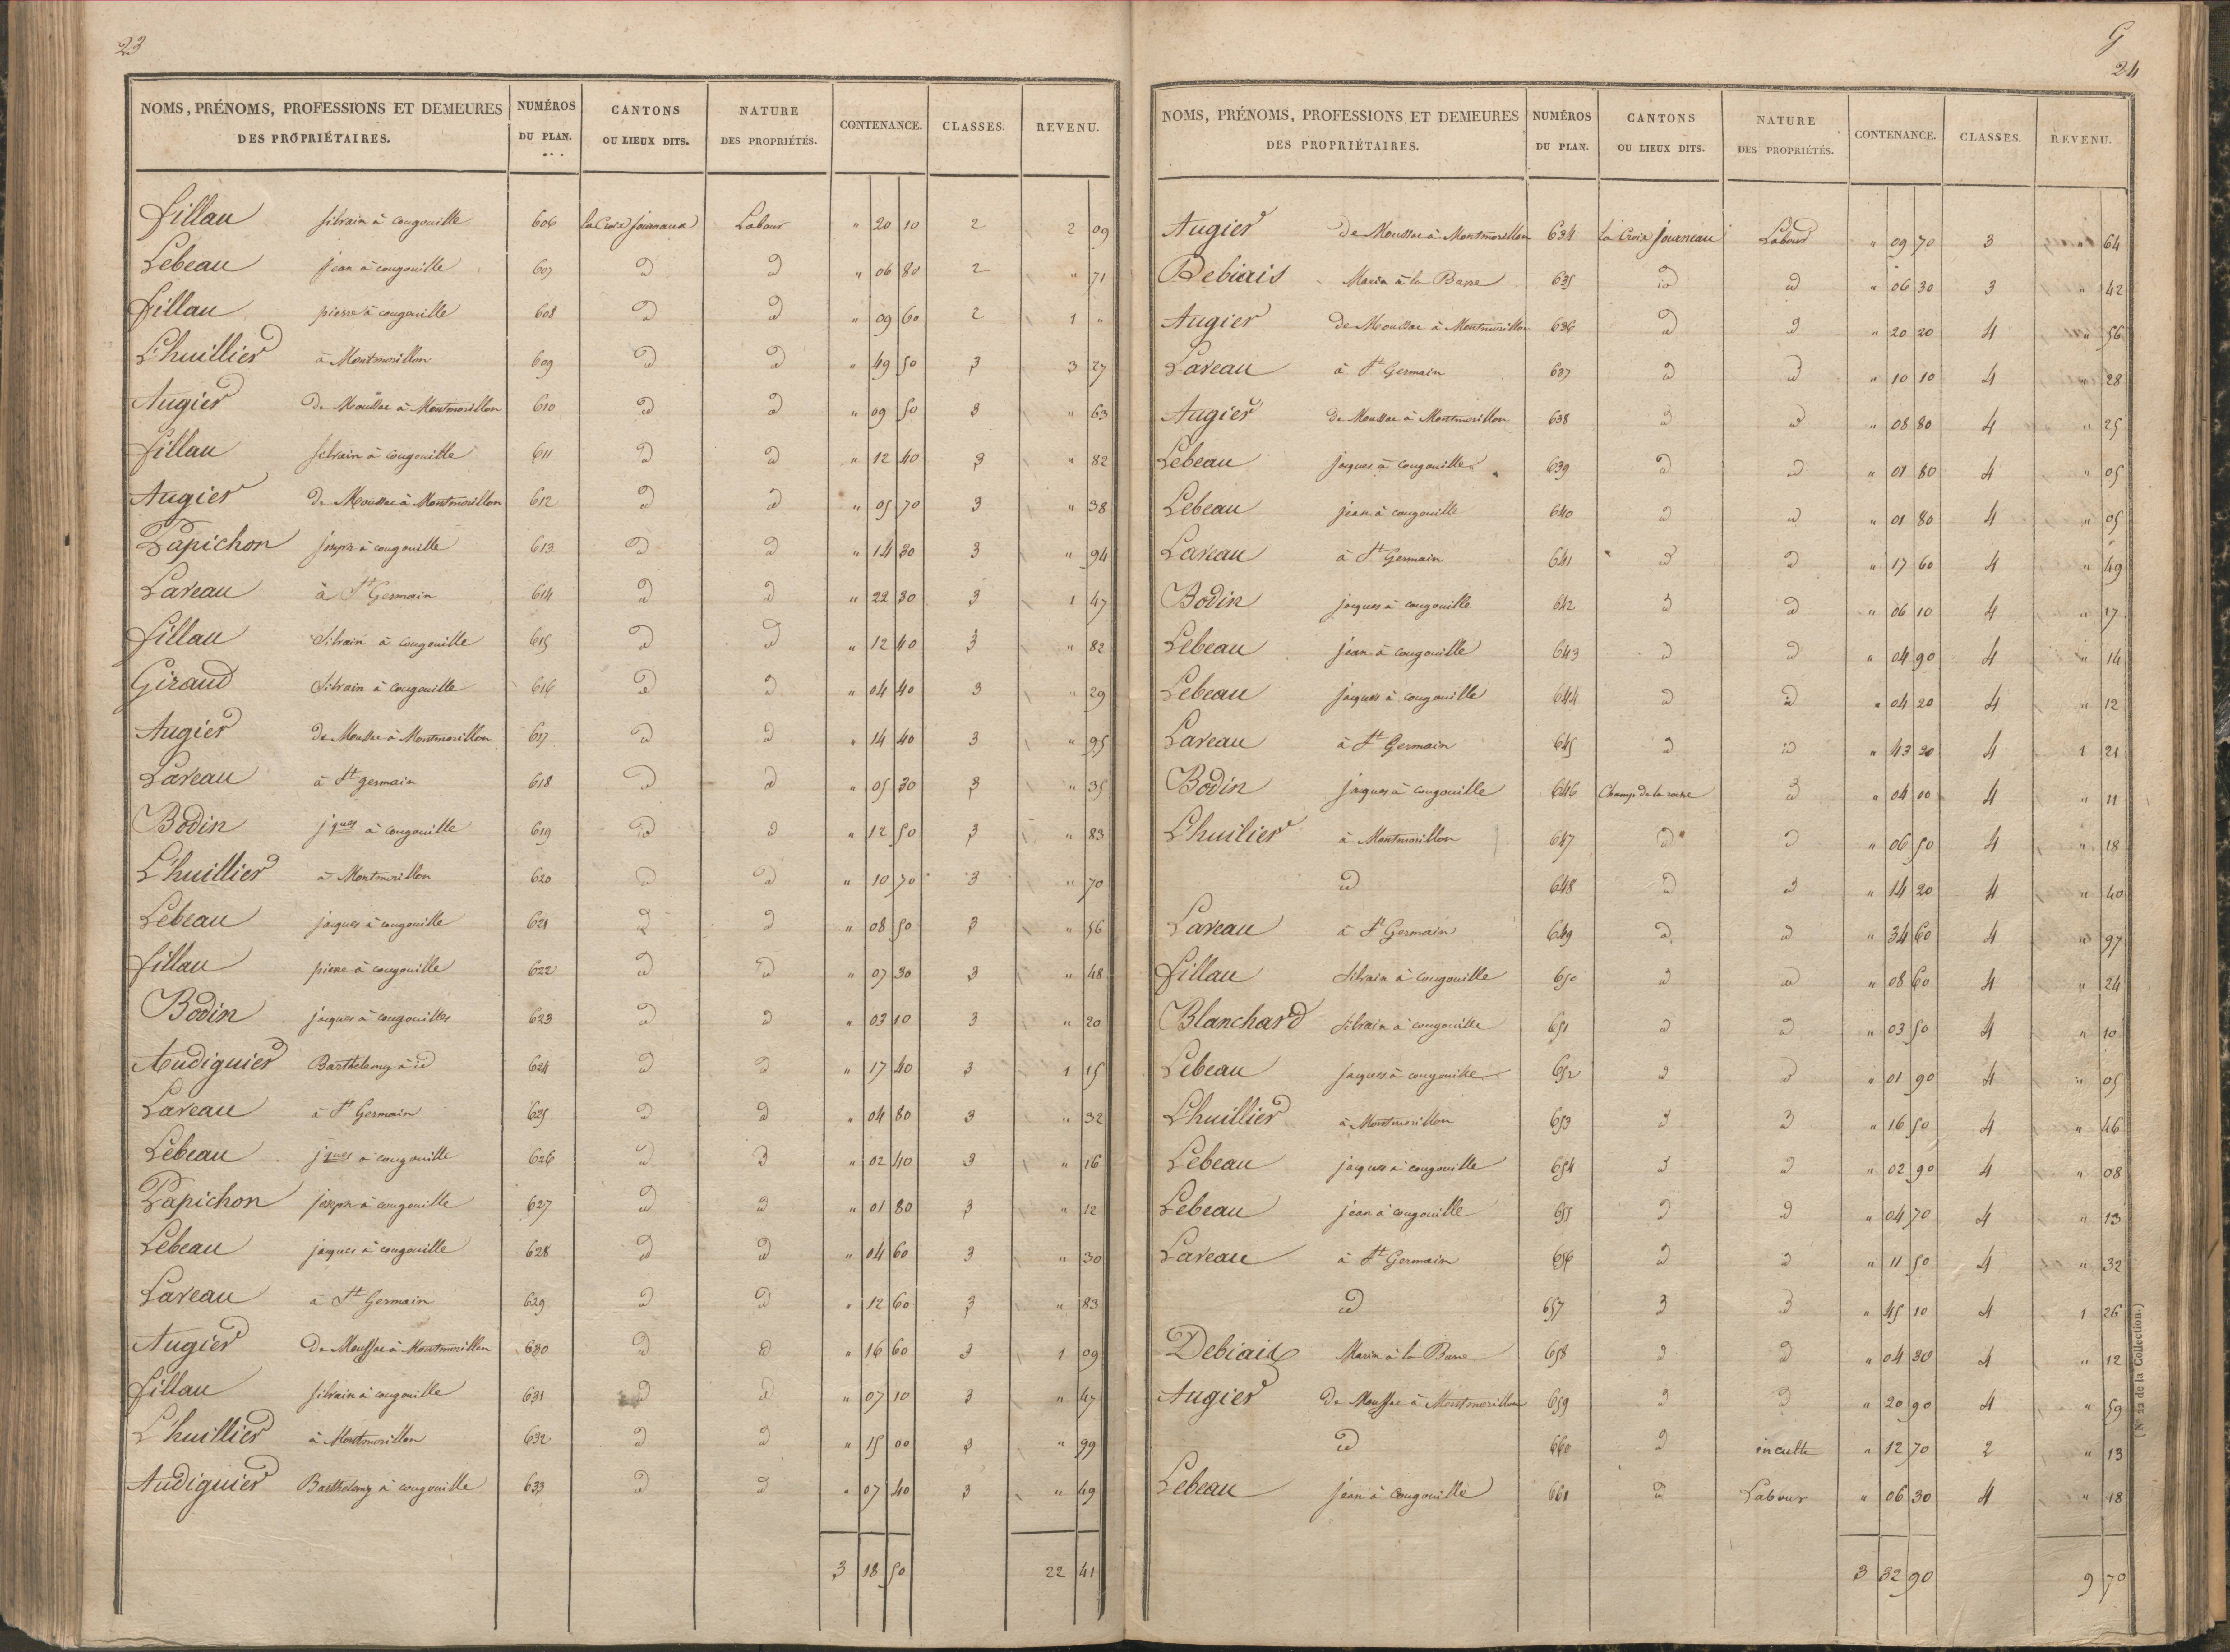 23
NOMS, PRÉNOMS, PROFESSIONS ET DEMEURES DES PROPRIÉTAIRES. NUMÉROS DU PLAN. CANTONS OU LIEUX DITS. NATURE DES PROPRIÉTÉS. CONTENANCE. CLASSES. REVENU.
fillau silvain à cougouille 606 la Croix journaux Labour " 20 10 2 2 09
Lebeau jean à cougouille 607 id id " 06 80 2 " 71
fillau pierre à cougouille 608 id id " 09 60 2 1 "
L'huillier à Montmorillon 609 id id " 49 50 3 3 27
Augier de Moussac à Montmorillon 610 id id " 09 50 3 " 63
fillau silvain à cougouille 611 id id " 12 40 3 " 82
Augier de Moussac à Montmorillon 612 id id " 05 70 3 " 38
Papichon joseph à cougouille 613 id id " 14 30 3 " 94
Laveau à St Germain 614 id id " 22 30 3 1 47
fillau Silvain à cougouille 615 id id " 12 40 3 " 82
Giraud Silvain à cougouille 616 id id " 04 40 3 " 29
Augier de Moussac à Montmorillon 617 id id " 14 40 3 " 95
Laveau à St germain 618 id id " 05 30 3 " 35
Bodin jques à cougouille 619 id id " 12 50 3 " 83
L'huillier à Montmorillon 620 id id " 10 70 3 " 70
Lebeau jacques à cougouille 621 id id " 08 50 3 " 56
fillau pierre à cougouille 622 id id " 07 30 3 " 48
Bodin jacques à cougouilles 623 id id " 03 10 3 " 20
Audiguier Barthelemy à id 624 id id " 17 40 3 1 15
Laveau à St Germain 625 id id " 04 80 3 " 32
Lebeau jques à cougouille 626 id id " 02 40 3 " 16
Papichon joseph à cougouille 627 id id " 01 80 3 " 12
Lebeau jacques à cougouille 628 id id " 04 60 3 " 30
Laveau à St Germain 629 id id " 12 60 3 " 83
Augier de Moussac à Montmorillon 630 id id " 16 60 3 1 09
fillau silvain à cougouille 631 id id " 07 10 3 " 47
L'huillier à Montmorillon 632 id id " 15 00 3 " 99
Audiguier Barthelemy à cougouille 633 id id " 07 40 3 " 49
3 18 50 22 41
G
24
NOMS, PRÉNOMS, PROFESSIONS ET DEMEURES DES PROPRIÉTAIRES. NUMÉROS DU PLAN. CANTONS OU LIEUX DITS. NATURE DES PROPRIÉTÉS. CONTENANCE. CLASSES. REVENU.
Augier de Moussac à Montmorillon 634 la Croix journeau Labour " 09 70 3 " 64
Debiais Marin à la Barre 635 id id " 06 30 3 " 42
Augier de Moussac à Montmorillon 636 id id " 20 20 4 " 56
Laveau à St Germain 637 id id " 10 10 4 " 28
Augier de Moussac à Montmorillon 638 id id " 08 80 4 " 25
Lebeau jacques à cougouille 639 id id " 01 80 4 " 05
Lebeau jean à cougouille 640 id id " 01 80 4 " 05
Laveau à St Germain 641 id id " 17 60 4 " 49
Bodin jacques à cougouille 642 id id " 06 10 4 " 17
Lebeau jean à cougouille 643 id id " 04 90 4 " 14
Lebeau jacques à cougouille 644 id id " 04 20 4 " 12
Laveau à St Germain 645 id id " 43 20 4 1 21
Bodin jacques à cougouille 646 Champ de la roche id " 04 00 4 " 11
L'huilier à Montmorillon 647 id id " 06 50 4 " 18
id 648 id id " 14 20 4 " 40
Laveau à St Germain 649 id id " 34 60 4 " 97
fillau Silvain à cougouille 650 id id " 08 60 4 " 24
Blanchard silvain à cougouille 651 id id " 03 50 4 " 10
Lebeau jacques à cougouille 652 id id " 01 90 4 " 05
L'huillier à Montmorillon 653 id id " 16 50 4 " 46
Lebeau jacques à cougouille 654 id id " 02 90 4 " 08
Lebeau jean à cougouille 655 id id " 04 70 4 " 13
Laveau à St Germain 656 id id " 11 50 4 " 32
id 657 id id " 45 10 4 1 26
Debiais Marin à la Barre 658 id id " 04 30 4 " 12
Augier de Moussac à Montmorillon 659 id id " 20 90 4 " 59
id 660 id inculte " 12 70 2 " 13
Lebeau jean à Cougouille 661 id Labour " 06 30 4 " 18
3 32 90 9 70
(N° 22 de la Collection.)